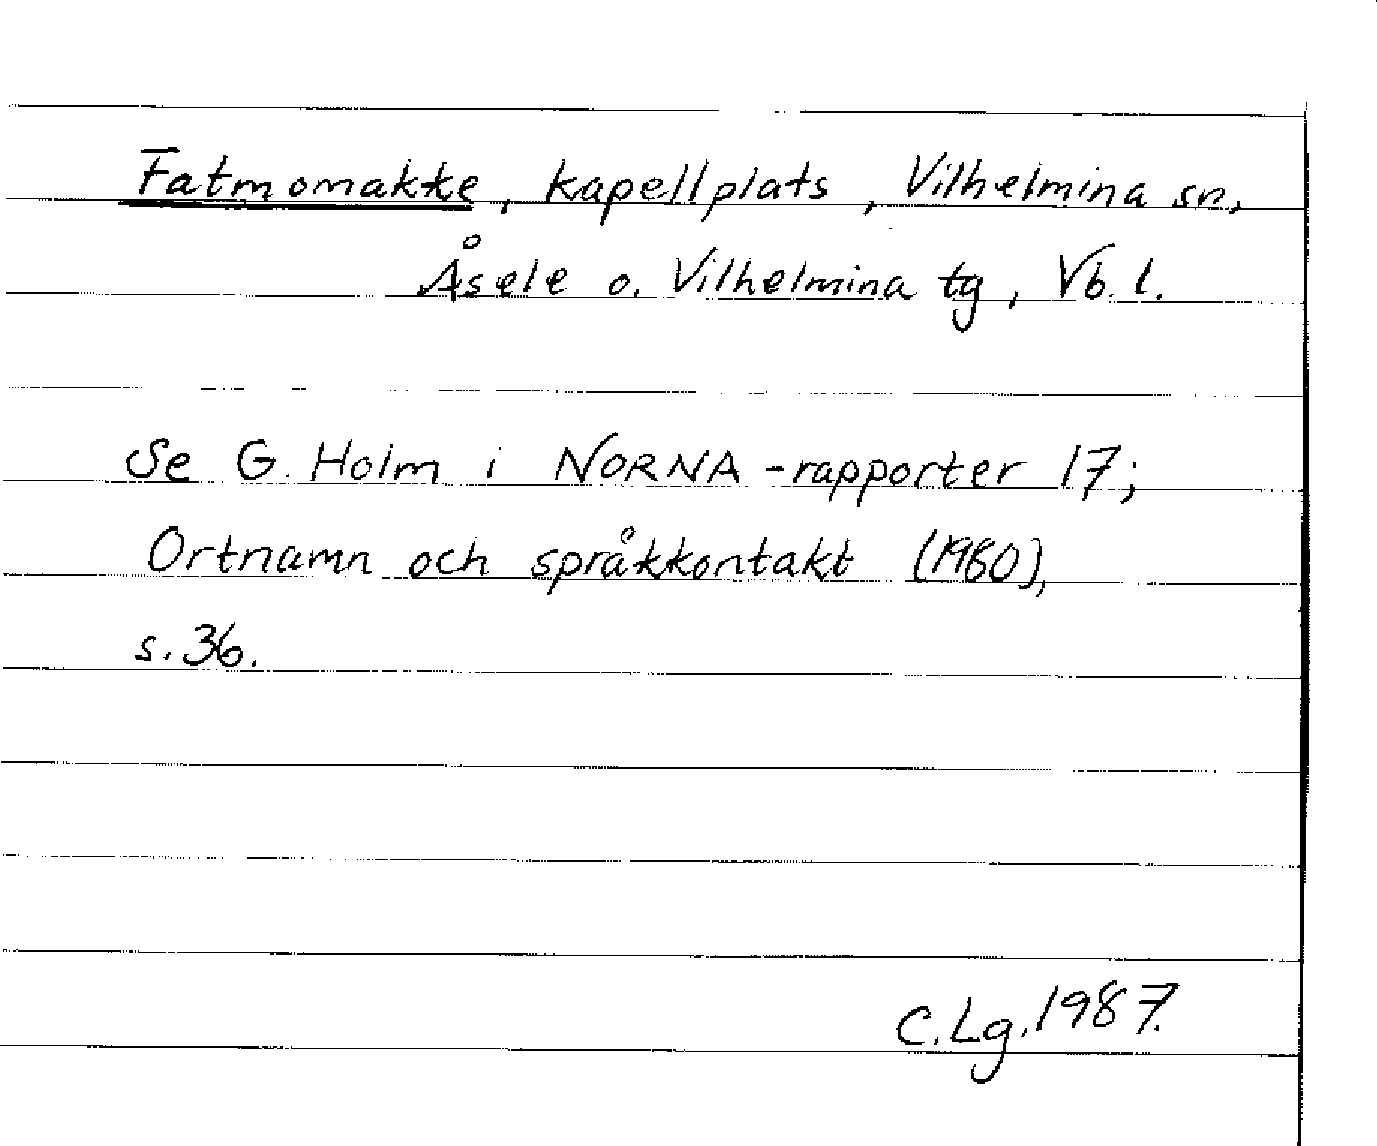 Fatmomakke, kapellplats, Vilhelmina sn,
Åsele o. Vilhelmina tg, Vb. l.
Se G. Holm i NORNA-rapporter 17;
Ortnamn och språkkontakt (1980),
s. 36.
C. Lg. 1987.